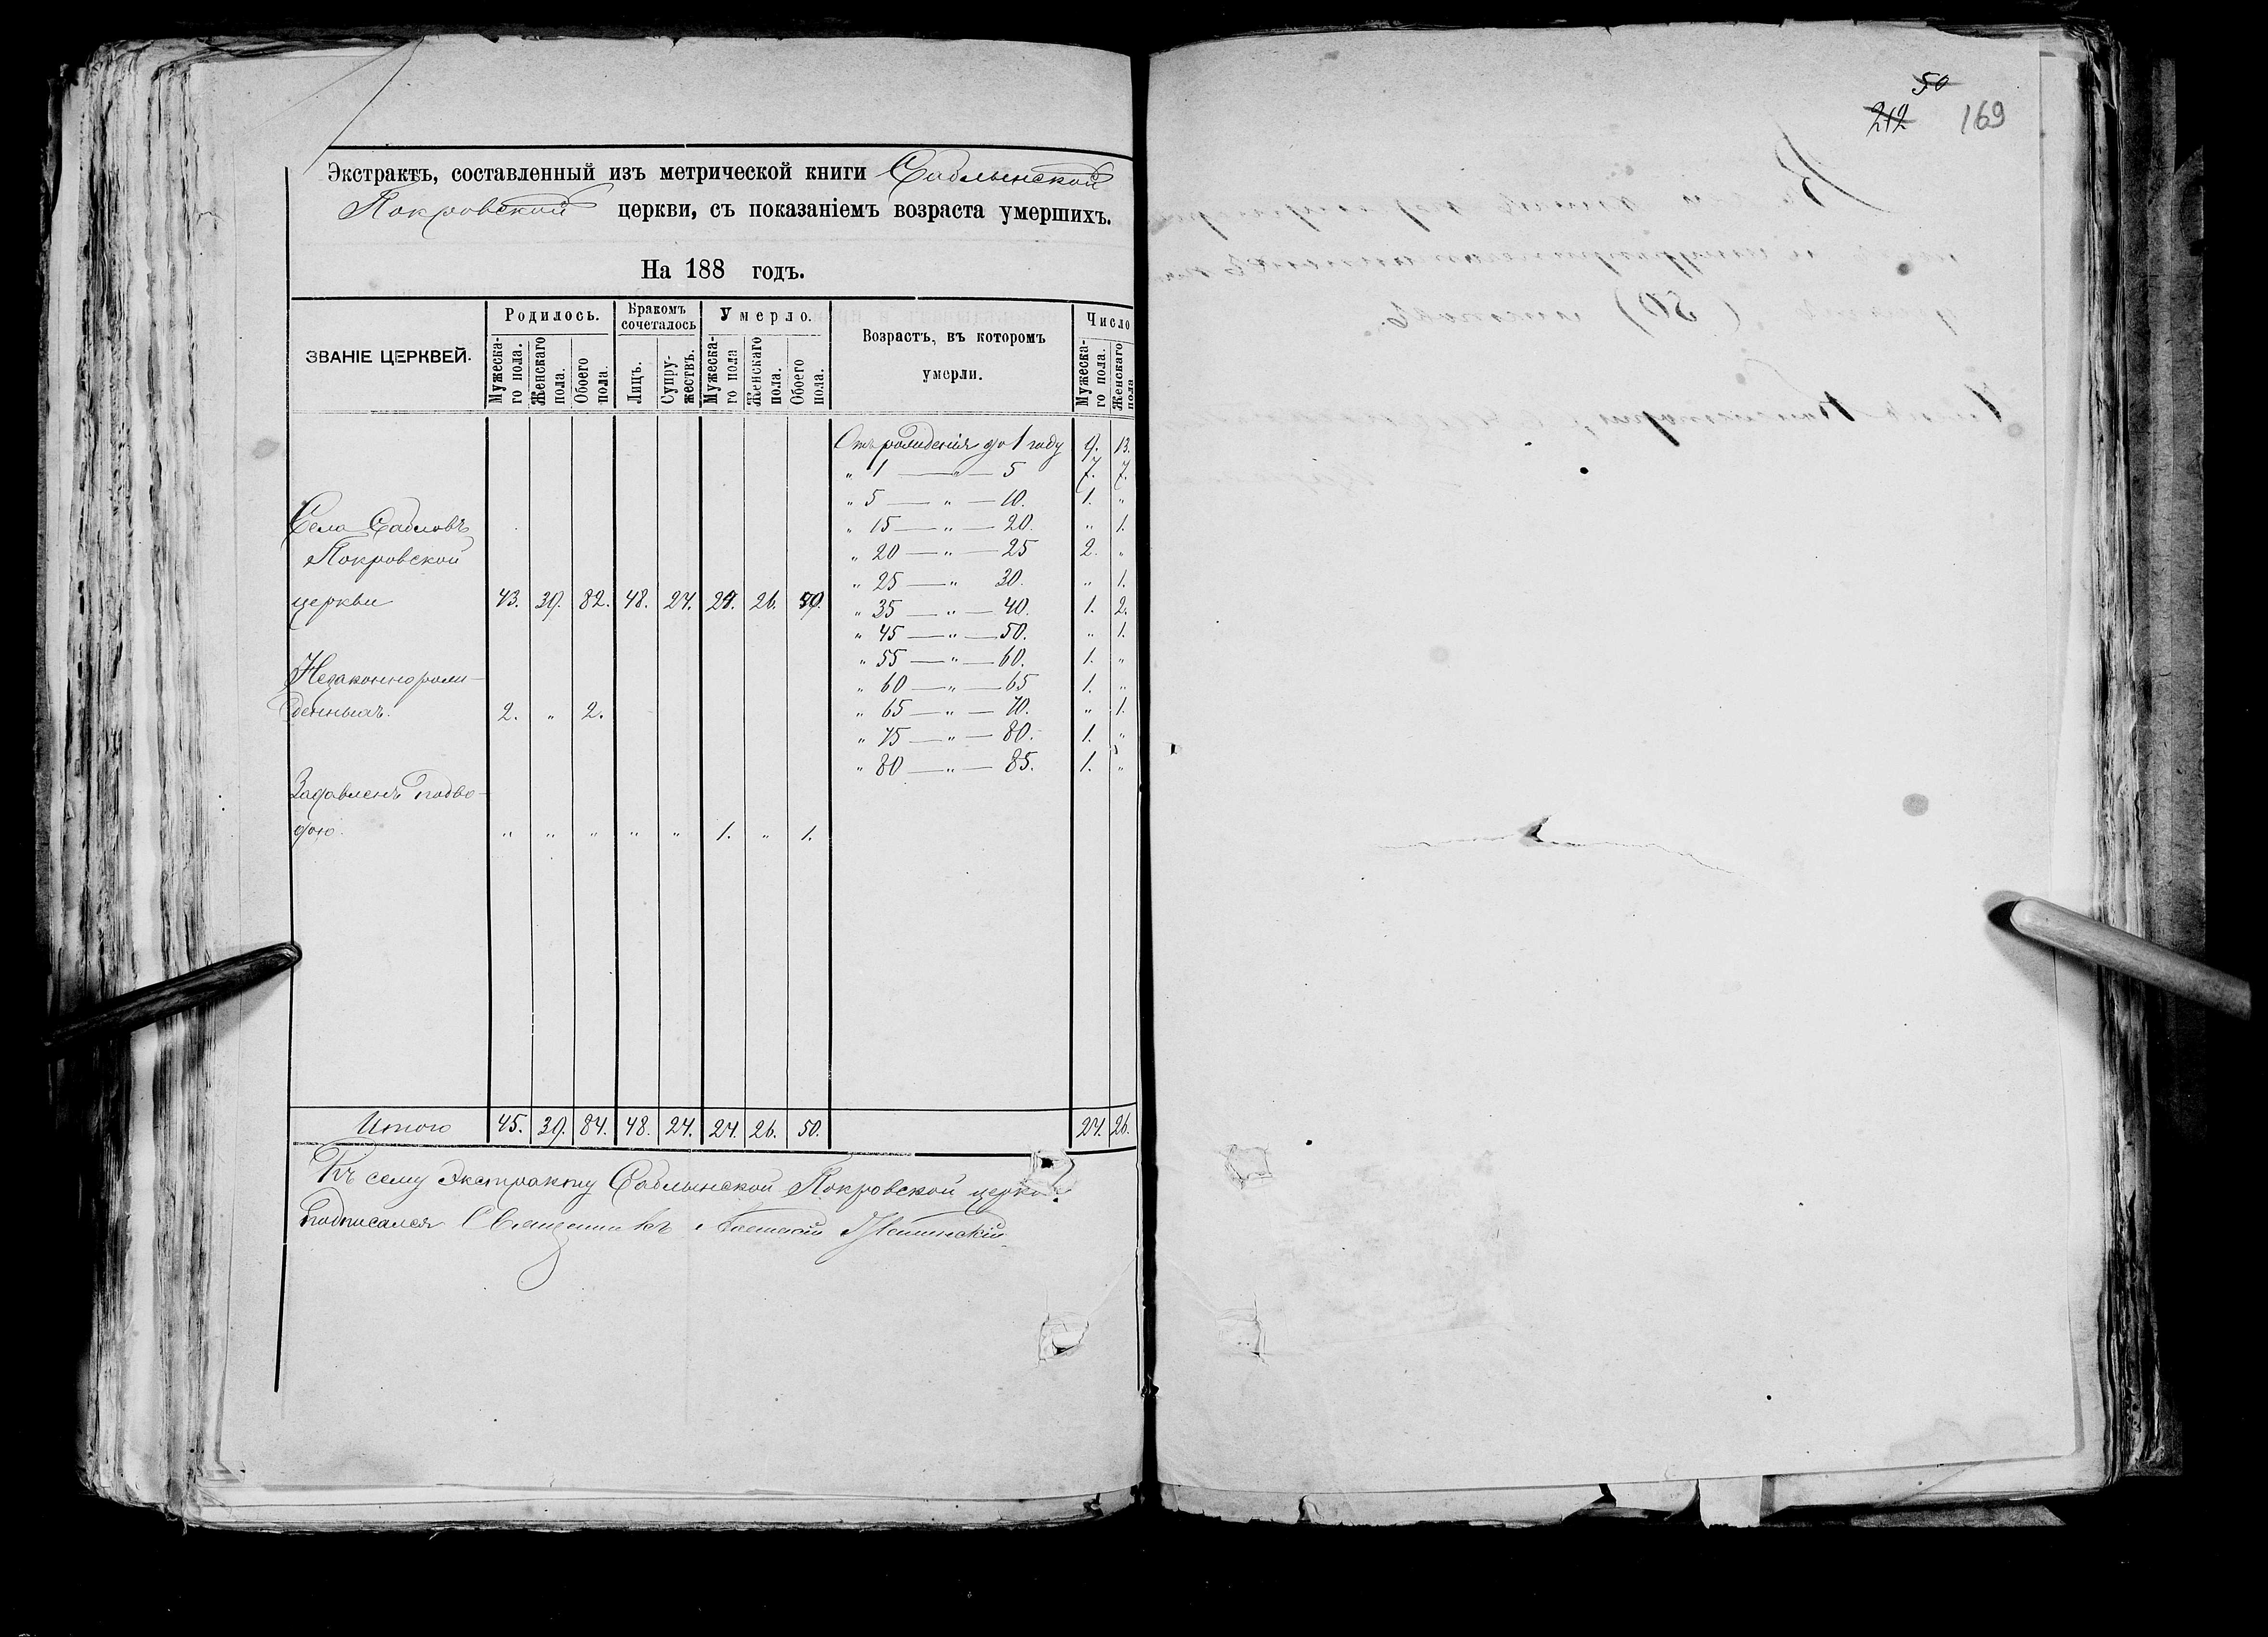 Экстрактъ, составленный изъ метрической книги Саблынской
Покровской церкви, съ показаніемъ возраста умершихъ.
На 188 годъ.
ЗВАНІЕ ЦЕРКВЕЙ.
Родилось.
Мужеска-
го пола.
Женскаго
пола.
Обоего
пола.
Бракомъ
сочеталось
Лицъ.
Супру-
жествъ.
Умерло.
Мужеска-
го пола
Женскаго
пола.
Обоего
пола.
Возрастъ, въ которомъ
умерли.
Число
Мужеска-
го пола.
Женскаго
пола
Отъ рожденія до 1 году 9. 13.
„ 1 — „ — 5 7. 7.
„ 5 — „ — 10. 1. „
„ 15 — „ — 20. „ 1.
„ 20 — „ — 25 2. „
„ 25 — „ 30. „ 1.
„ 35 — „ — 40. 1. 2.
„ 45 — „ — 50. „ 1.
„ 55 — „ — 60. 1. „
„ 60 — „ — 65 1. „
„ 65 — „ — 70. „ 1.
„ 75 — „ — 80. 1. „
„ 80 — „ — 85. 1. „
Села
Покровской
церкви 43. 39. 82. 48. 24. 26.
Незаконнорож-
денныхъ. 2. „ 2.
Задавленъ подво-
дою. „ „ „ „ „ 1. „ 1.
Итого 45. 39. 84. 48. 24. 24. 26. 50. 24. 26.
Къ сему экстракту Саблынской Покровской
подписался Священникъ
50
212 169